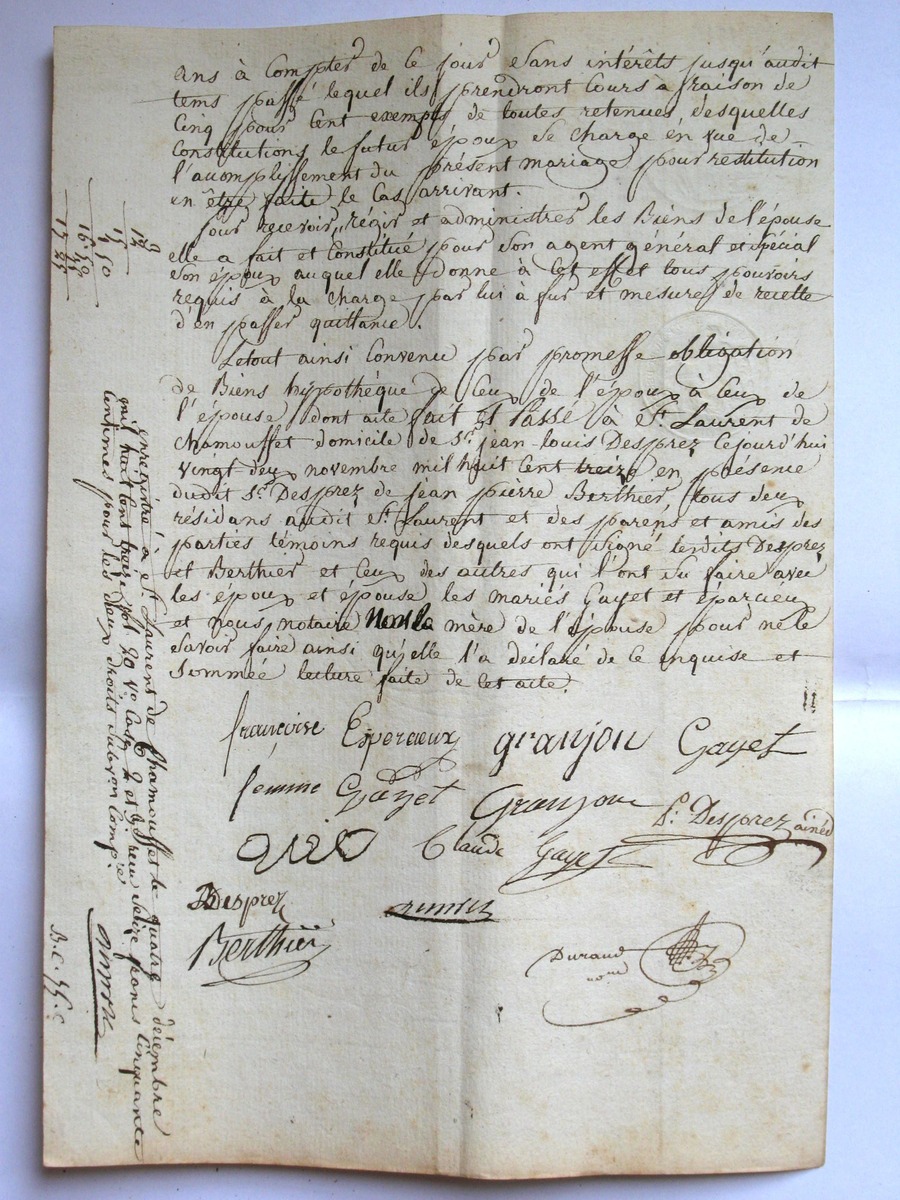 ans à Compter de Ce jour Sans intérêts jusqu'audit
tems passé lequel ils prendront Cours à raison de
Cinq pour Cent exempts de toutes retenues desquelles
Constitutions le futur époux Se Charge en vue de
l'accomplissement du présent mariage pour restitution
en être faite le Cas arrivant.
Pour recevoir, régir et administrer les Biens de l'épouse
elle a fait et Constitué pour Son agent général et Spécial
Son époux auquel elle donne à Cet effet tous pouvoirs
requis à la Charge par lui à fur et mesure de recette
d'en passer quittance.
Letout ainsi Convenu par promesse obligation
de Biens hypothéque de Ceux de l'époux à Ceux de
l'épouse dont acte fait Et Passé à St. Laurent de
Chamousset domicile de Sr. jean louis Desprez Cejourd'hui
vingt deux novembre mil huit Cent treize en présence
dudit Sr. Desprez de jean pierre Berthier, tous deux
résidans audit St. Laurent et des parens et amis des
parties témoins requis desquels ont Signé lesdits Desprez
et Berthier et Ceux des autres qui l'ont Su faire avec
les époux et épouse les mariés Gayet et éparcieux
et nous notaire Non la mère de l'épouse pour ne le
Savoir faire ainsi qu'elle l'a déclaré de Ce enquise et
Sommée lecture faite de Cet acte.
françoise Espercieux granjon Gayet
femme Gayet Granjon Ls. Desprez ainé
Claude Gayet
Desprez
Berthier
Durand
nore
enregistré à St. Laurent de Chamousset le quatre décembre
mil huit Cent treize fol. 20 Vo. Cases 2 et 3, reçu Seize francs Cinquante
Centimes pour les deux droits Subvon. Compse.
15
1 50
16 50